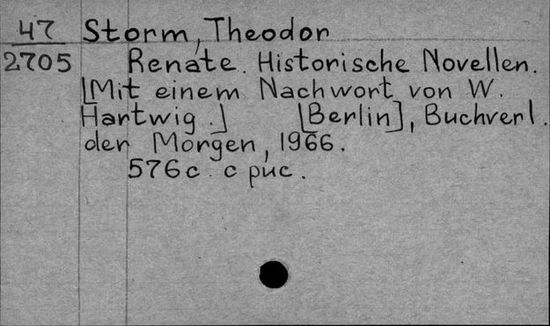 47 Storm, Theodor
2705 Renate. Historische Novellen.
[Mit einem Nachwort von W.
Hartwig.] [Berlin], Buchverl.
der Morgen, 1966.
576 с. с рис.